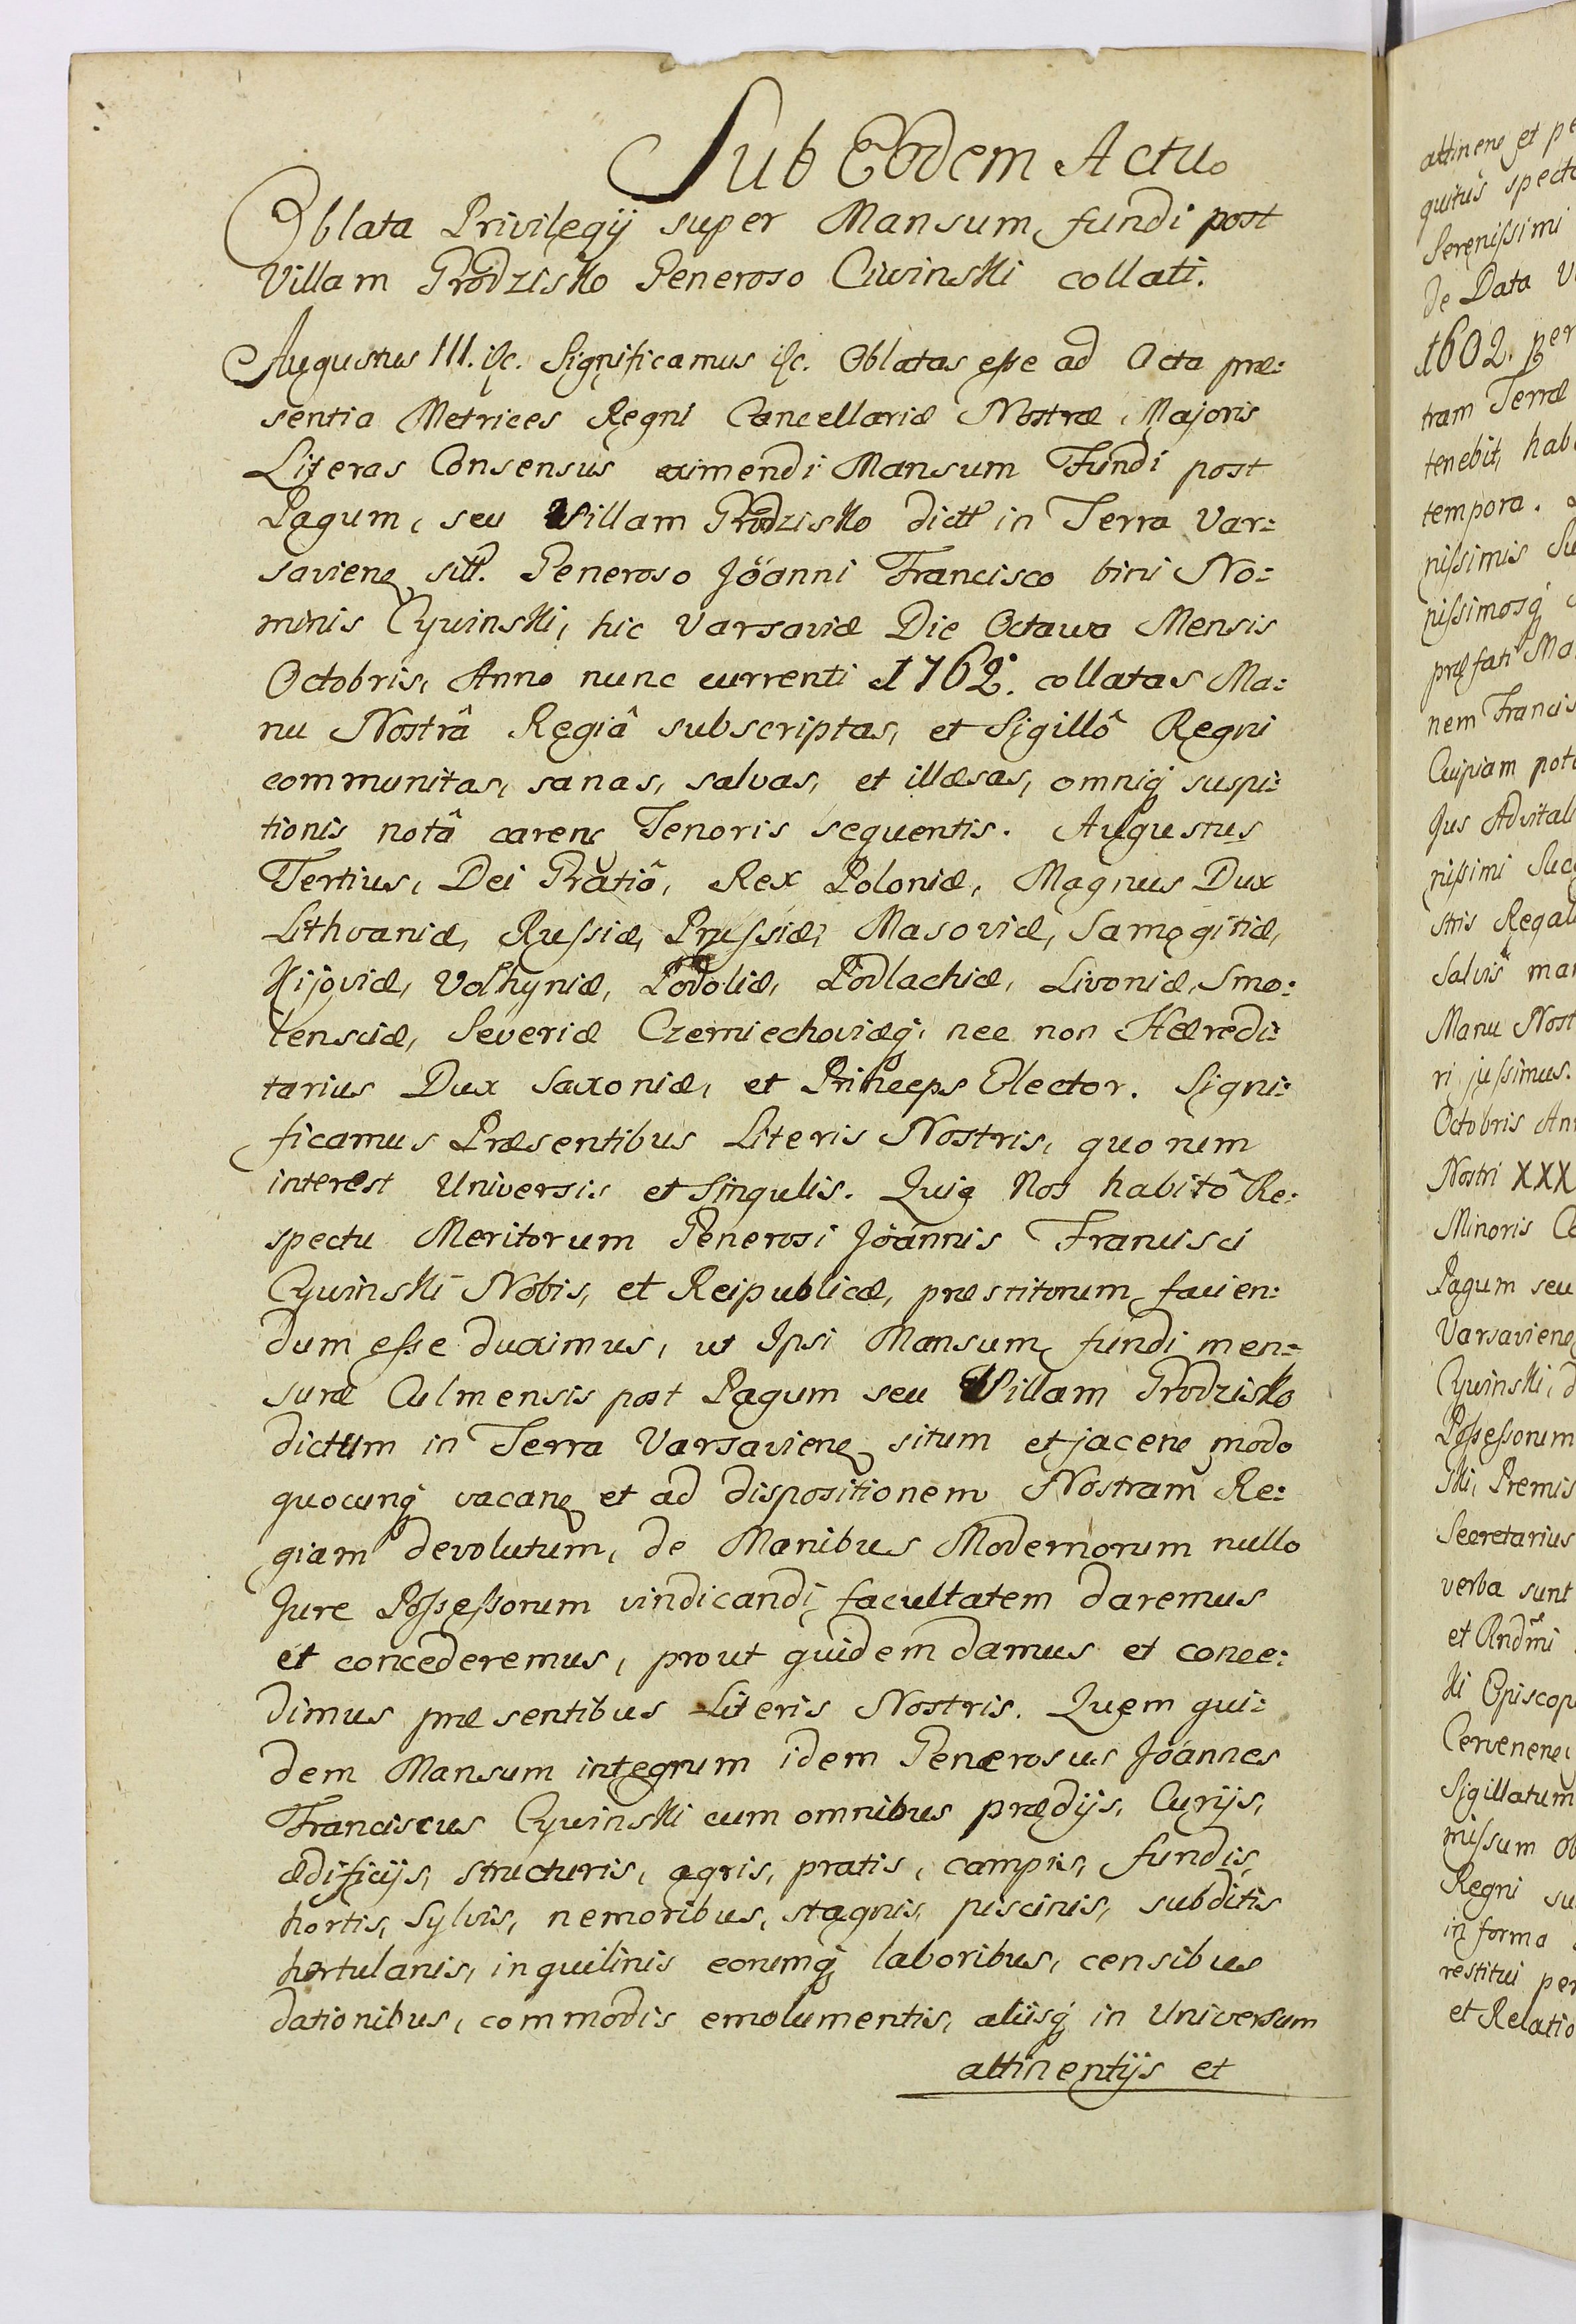 Sub Eodem Actu.
Oblata Privilegij super Mansum fundi post
Villam Grodzisko Generoso Ciwinski collati.
Augustus III. &c. Significamus &c. Oblatas esse ad Acta præ:
sentia Metrices Regni Cancellariæ Nostræ Majoris
Literas Consensus eximendi Mansum Fundi post
Pagum, seu Villam Grodzisko dictt in Terra Var:
saviens sitt. Generoso Jöanni Francisco bini No:
minis Cywinski, hic Varsaviæ Die Octava Mensis
Octobris, Anno nunc currenti 1762. collatas Ma:
nu Nostrâ Regiâ subscriptas, et Sigillô Regni
communitas, sanas, salvas, et illæsas, omniq suspi:
tionis notâ carens Tenoris sequentis. Augustus
Tertius, Dei Gratiâ, Rex Poloniæ, Magnus Dux
Lithvaniæ, Russiæ, Prussiæ, Masoviæ, Samogitiæ,
Kijoviæ, Volhyniæ, Podoliæ, Podlachiæ, Livoniæ, Smo:
lensciæ, Severiæ Czerniechoviæq, nec non Hæredi:
tarius Dux Saxoniæ, et Princeps Elector. Signi:
ficamus Præsentibus Literis Nostris, quorum
interest Universis et Singulis. Quia Nos habitô Re:
spectu Meritorum Generosi Jöannis Francisci
Cywinski Nobis, et Reipublicæ, præstitorum, facien:
dum esse duximus, ut Ipsi Mansum fundi men:
suræ Culmensis post Pagum seu Villam Grodzisko
dictum in Terra Varsaviens situm et jacens modo
quocunq vacans et ad dispositionem Nostram Re:
giam devolutum, de Manibus Modernorum nullo
Jure Possessorum vindicandi facultatem daremus
et concederemus, prout quidem damus et conce:
dimus præsentibus Literis Nostris. Quem qui:
dem Mansum integrum idem Generosus Jöannes
Franciscus Cywinski cum omnibus prædijs, Curijs,
ædificijs, structuris, agris, pratis, campis, fundis,
hortis, Sylvis, nemoribus, stagnis, piscinis, subditis
hortulanis, inquilinis eorumq laboribus, censibus
dationibus, commodis emolumentis, aliisq in Universum
attinentijs et
attinens et
quitus
Serenissimi
de Data
1602. per
tram Terræ
tenebit,
tempora.
nissimis
nissimosq
præfati
nem
Cuipiam
Jus
nissimi
stris
Salvis
Manu
ri jussimus.
Octobris
Nostri XXX
Minoris
Pagum seu
Varsaviens
Cywinski,
Possessorum
ski, Premis
Secretarius
verba sunt
et Rndmi
ki
Cervenens
Sigillatum
missum
Regni
in forma
restitui
et